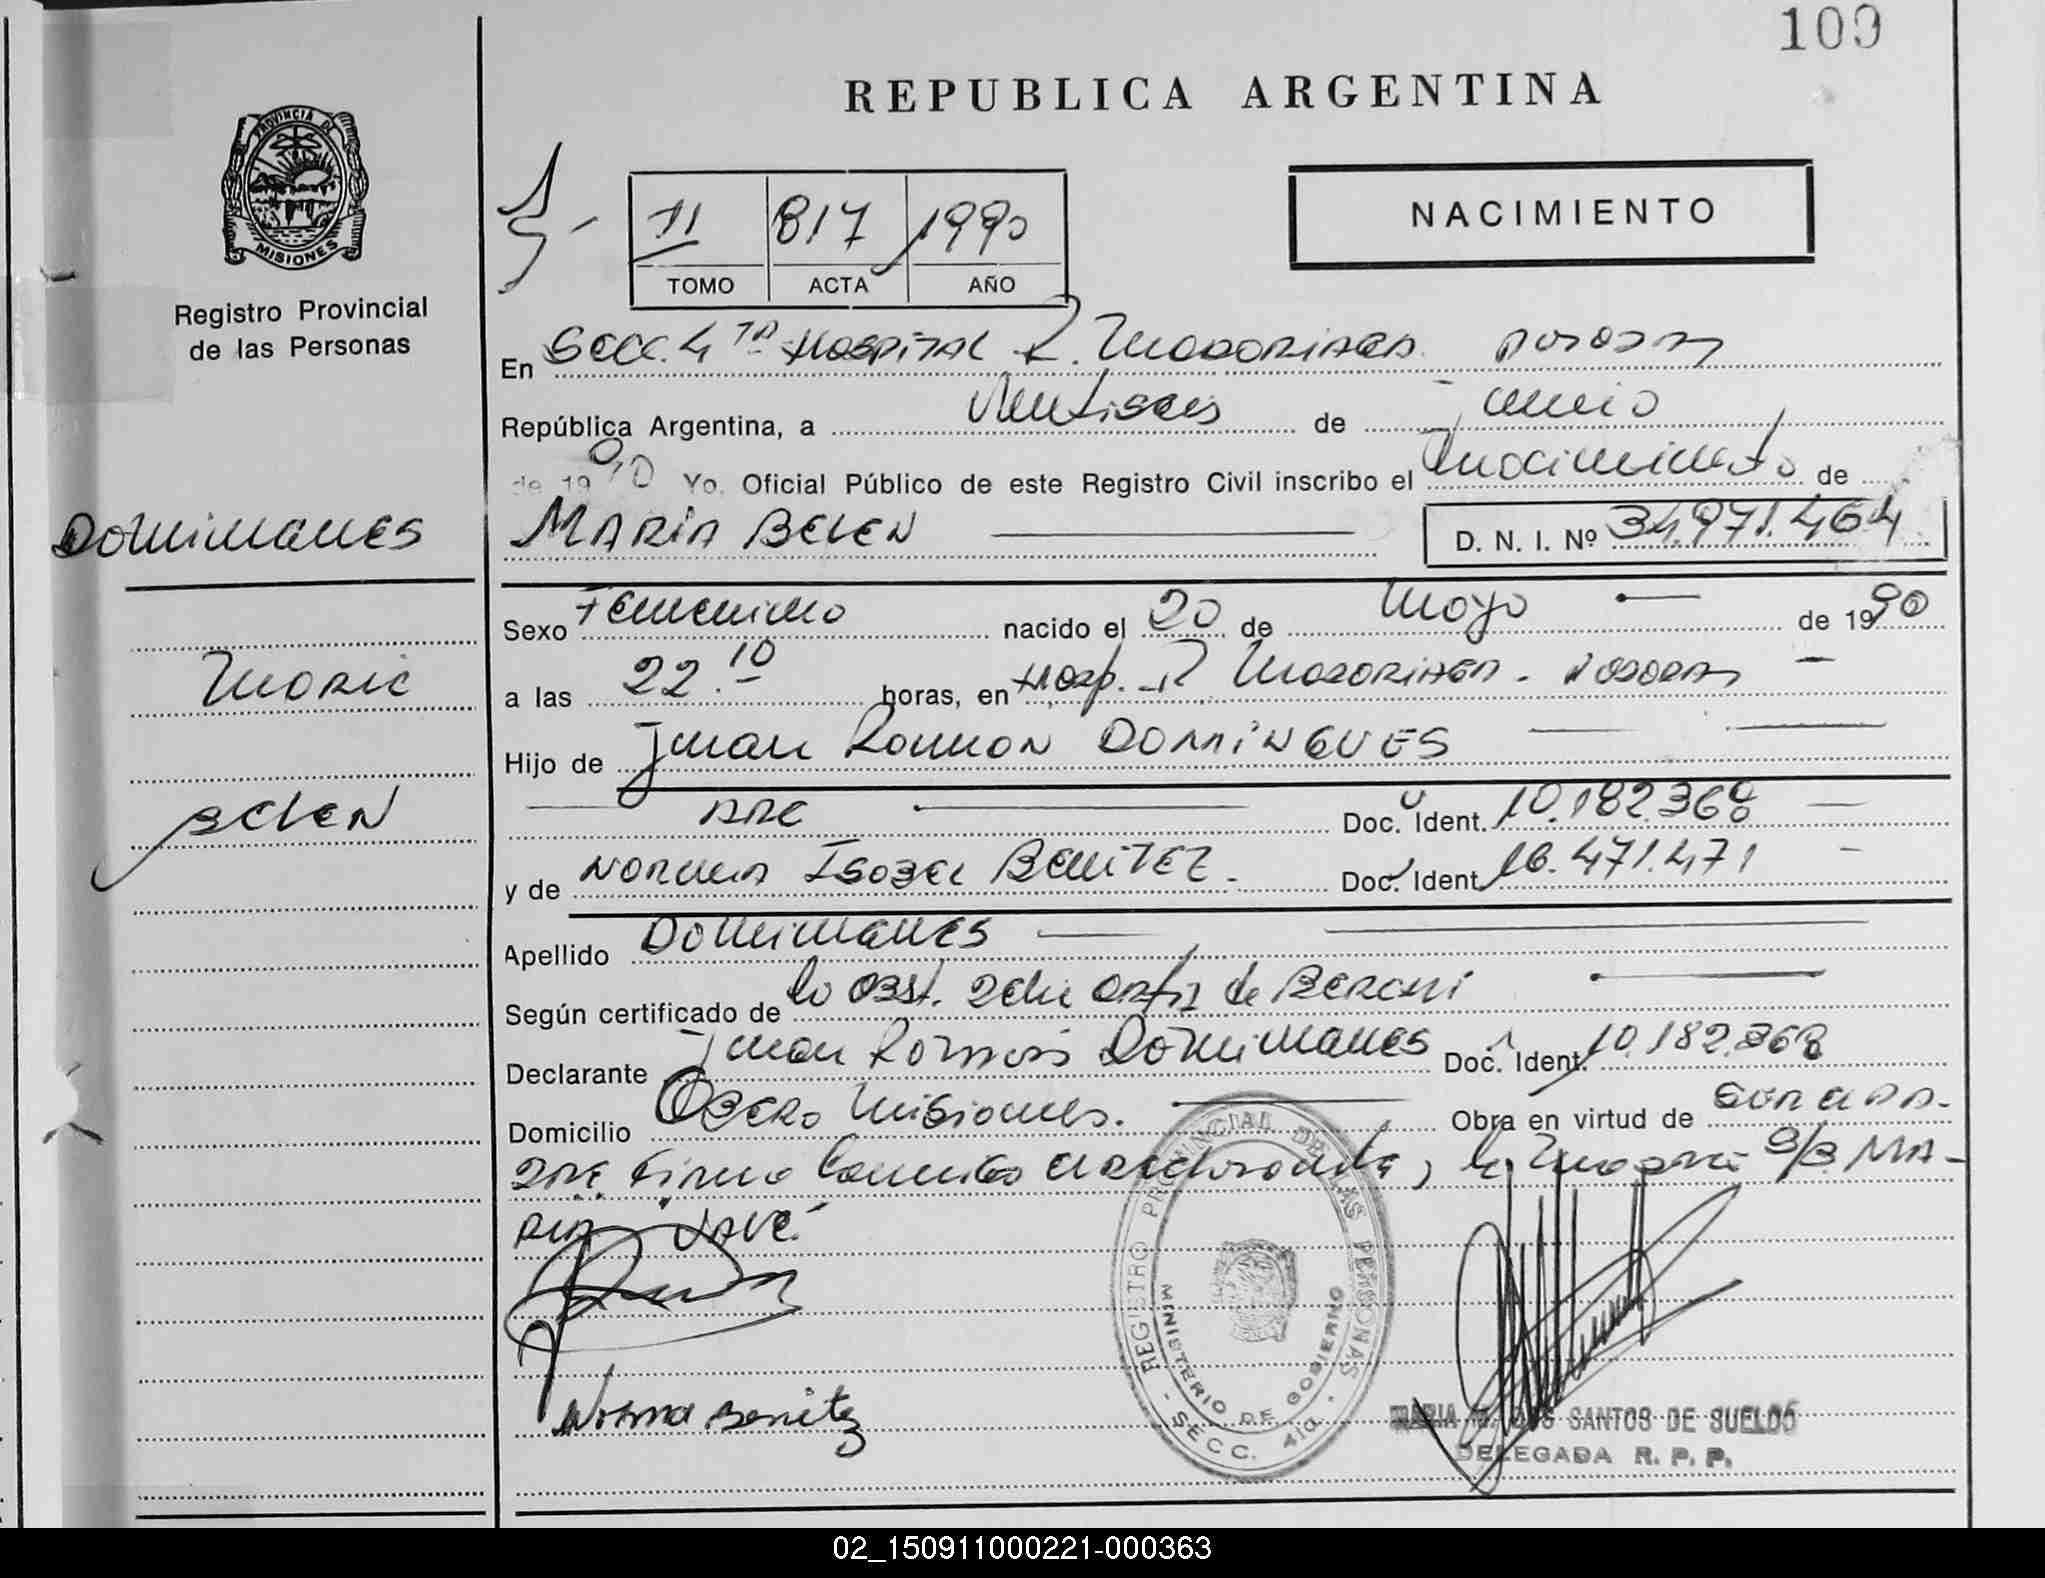 109
REPUBLICA ARGENTINA
PROVINCIA DE
MISIONES
Registro Provincial
de las Personas
11 817 1990
TOMO ACTA AÑO
NACIMIENTO
En Secc. 4ta Hospital R. Madariaga Posadas
República Argentina, a Veintiseis de Junio
de 1990 Yo, Oficial Público de este Registro Civil inscribo el nacimiento de
Domingues
MARIA BELEN D. N. I. Nº 34.971.464
Sexo Femenino nacido el 20 de Mayo de 1990
Maria
a las 22.10 horas, en Hosp. R Madariaga - Posadas
Hijo de Juan Ramon DOMINGUES
Belen
Doc. Ident. 10.182.368
y de Norma Isabel Benitez. Doc. Ident. 16.471.471
Apellido Domingues
Según certificado de la Obst. Ortiz de
Declarante Juan Ramon Domingues Doc. Ident. 10.182.368
Domicilio Obera Misiones. Obra en virtud de
firma la Madre S/B MA-
VALE.
Norma Benitez
REGISTRO PROVINCIAL DE LAS PERSONAS
MINISTERIO DE GOBIERNO
- SECC. 4ta -
MARIA DOS SANTOS DE SUELDO
DELEGADA R. P. P.
02_150911000221-000363